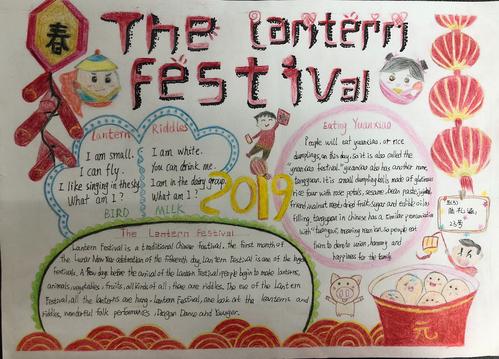 春
The Lantern
Festival
Lantern
I am small.
I can fly.
I like singing in the sky.
What am I?
BIRD
Riddles
I am white.
You can drink me.
I am in the dairy group.
What am I?
MILK
2019
Eating Yuanxiao
People will eat yuanxiao, or rice
dumplings, on this day, so it is also called the
"yuanxiao festival." Yuanxiao also has another name,
tangyuan. It is small dumpling balls made of glutinous
rice flour with rose petals, sesame, bean paste,
walnut meat, dried fruit, sugar and edible oil as
filling. tangyuan in chinese has a similar pronunciation
with "tuanyuan", meaning reunion. so people eat
them to denote union, harmony and
happiness for the family.
The Lantern Festival
Lantern Festival is a traditional Chinese festival, the first month of
the Lunar New Year celebration of the fifteenth day, Lantern Festival is one of the
festivals. A few days before the arrival of the Lantern Festival, people begin to make lanterns,
animals, vegetables, fruits, all kinds of all, there are riddles. The eve of the Lantern
Festival, all the lanterns are hung. Lantern Festival, one look at the lanterns and
riddles, wonderful folk performances, Dragon Dance and Yangge.
元